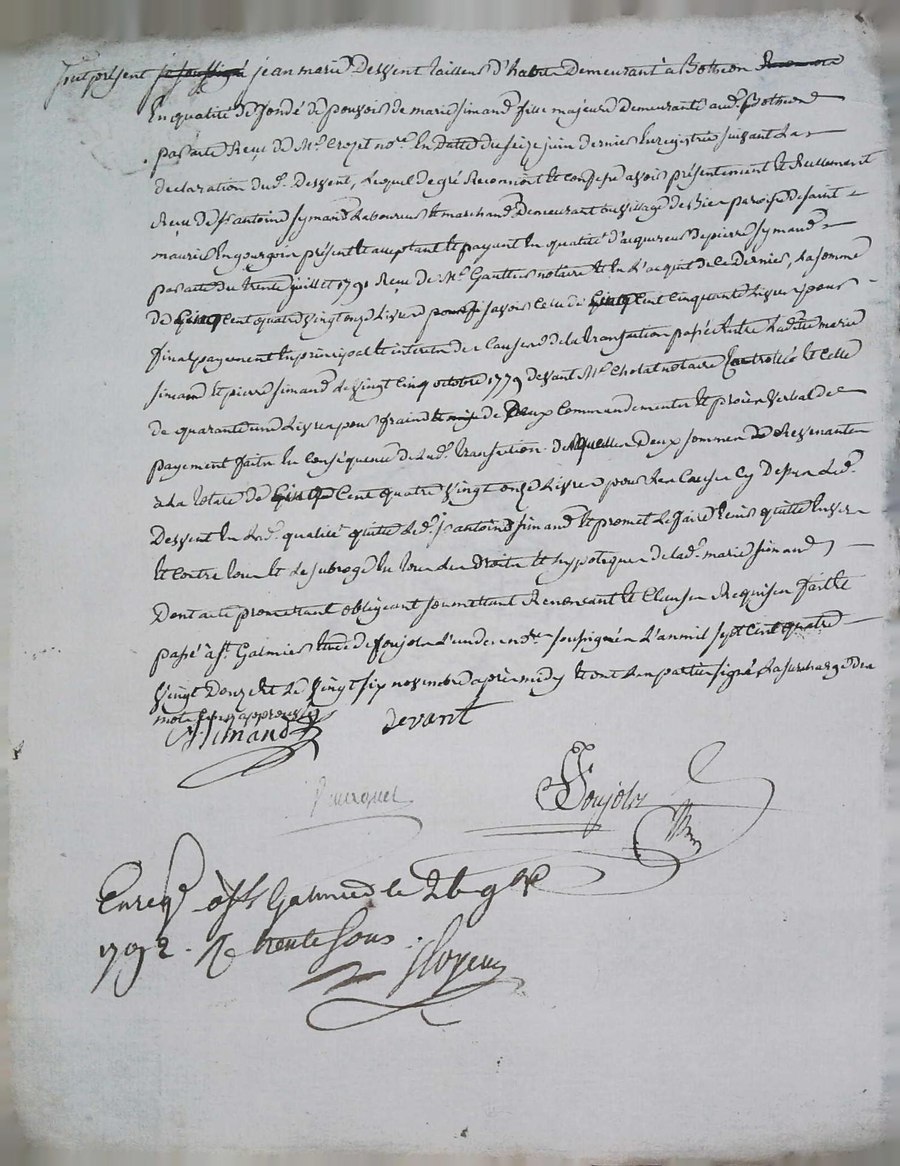 fut présent je soussigné jean marie Dessent tailleur d'habits Demeurant à Bothéon
En qualité de fondé de pouvoir de marie simand fille majeure Demeurante aud. Bothéon
par acte Reçu de Me. Crozet nore. En datte du seize juin dernier Enregistré suivant La
declaration dud. Dessent, Lequel de gré Reconnoit et confesse avoir présentement et Réellement
Reçu de sr. antoine symand Laboureur et marchand Demeurant au village de paroisse de saint
maurice En gourgois présent et acceptant et payant En qualité d'acquereur de pierre symand
par acte du trente juillet 1791 Reçu de Me. Gaultier notaire et En L'acquit de ce Dernier, La somme
de Cinq Cent quatre vingt onze Livres savoir celle de Cinq Cent Cinquante Livres pour
final payement En principal et interets des Causes de la transaction passée Entre Ladite marie
simand et pierre simand le vingt Cinq octobre 1779 devant Me. Cholat notaire Controllée et Celle
de quarante une Livres pour fraix et mise de Deux Commandements et procès verbal de
payement faits En Conséquence de Lad. transaction. desquelles Deux sommes Revenantes
à La totale de Cinq Cent quatre vingt onze Livres pour Les Causes Cy Dessus Led.
Dessent En Lad. qualité quitte Led. sr. antoine simand et promet Le faire tenir quitte Envers
et Contre tous et Le subroge En tous les Droits et hypoteques de lad. marie simand
Dont acte promettant obligeant soumettant Renonçant et Clauses Requises fait et
passé à st. Galmier Etude de soujols L'un des nores. soussignés L'an mil sept cent quatre
vingt Douze et Le vingt six novembre après midy et ont Les parties signé, La surcharge des
mots Cinq approuvée
A Simand devant
Soujols
Enregé. à st. Galmier le 26 9bre
1792. R trente sous.